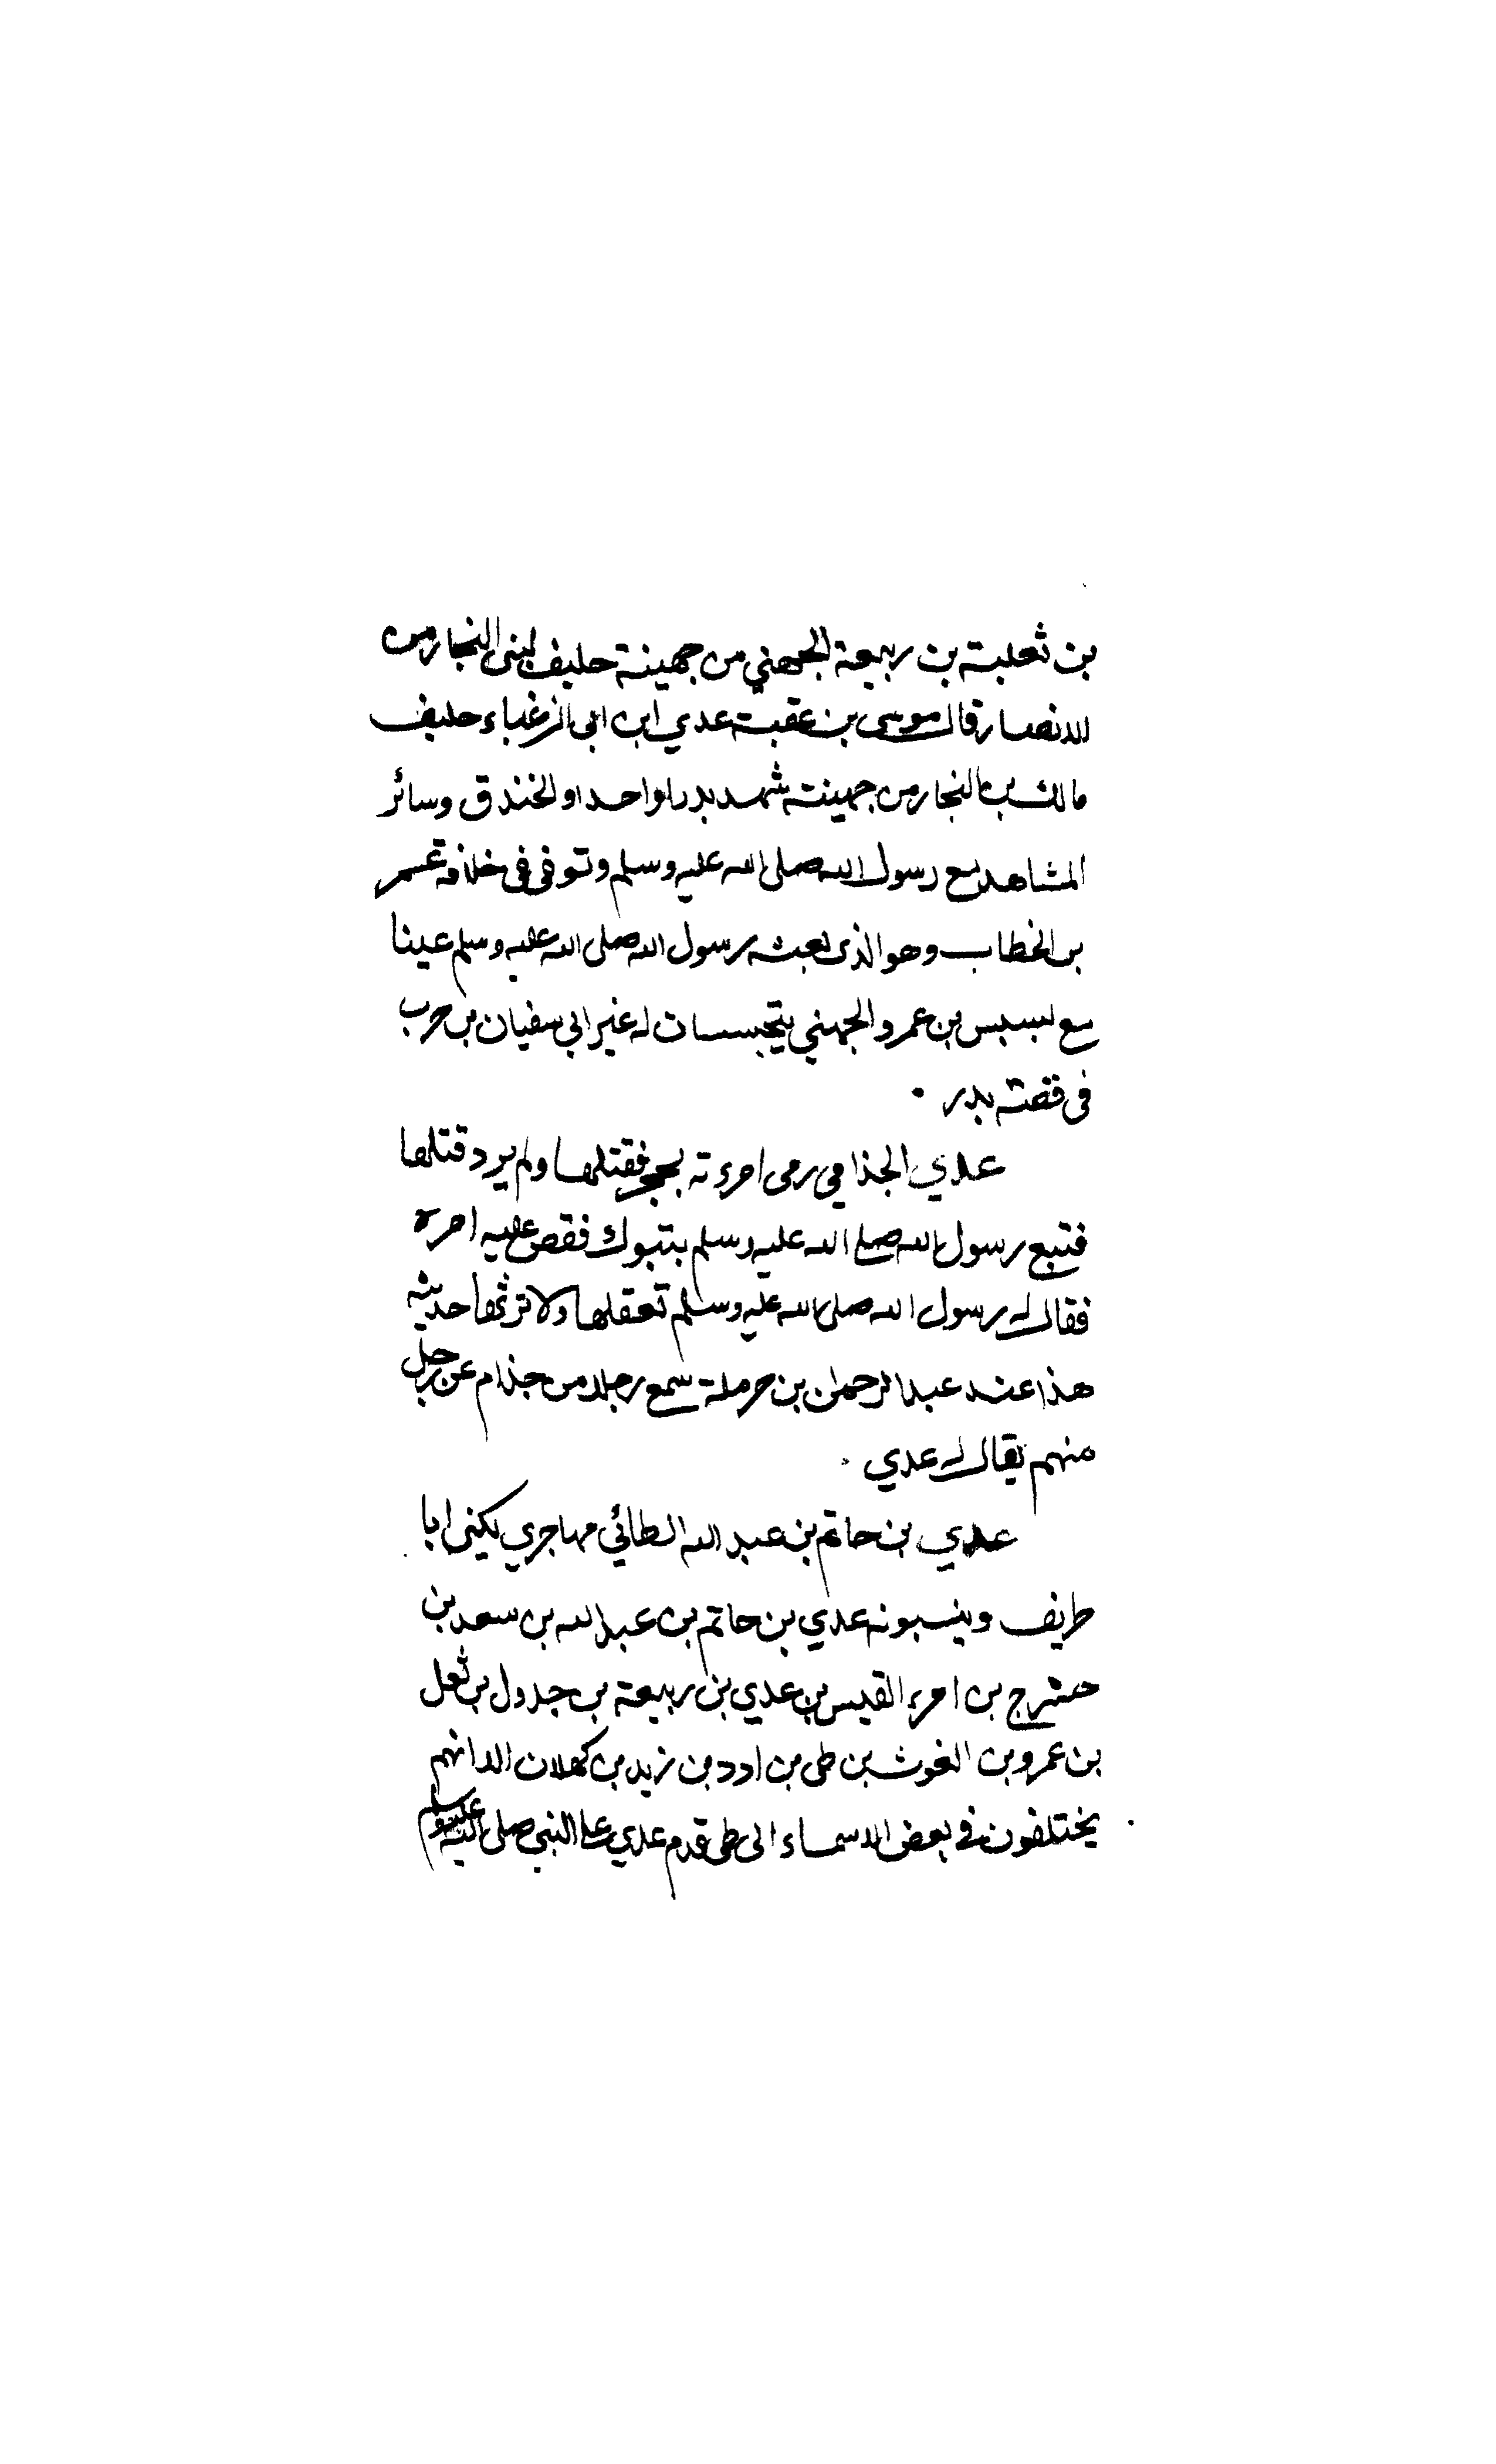 بن ثعلبة بن ربيعة الجهني من جهينة حليف لبني النجار من
الانصار قال موسى بن عقبة عدي ابن ابي الزغباء حليف
مالك بن النجار من جهينة شهد بدرا واحدا والخندق وسائر
المشاهد مع رسول الله صلى الله عليه وسلم وتوفي في خلافة عمر
بن الخطاب وهو الذي بعثه رسول الله صلى الله عليه وسلم عينا
مع بسبس بن عمرو الجهني يتجسسان له عير ابي سفيان بن حرب
في قصة بدر .
عدي الجذامي رمى امرءته بحجر فقتلها ولم يرد قتلها
فتبع رسول الله صلى الله عليه وسلم بتبوك فقص عليه امره
فقال له رسول الله صلى الله عليه وسلم تعقلها ولا ترثها حديثه
هذا عند عبد الرحمن بن حرملة سمع رجلا من جذام عن رجل
منهم يقال له عدي .
عدي بن حاتم بن عبد الله الطائي مهاجري يكنى ابا
طريف وينسبونه عدي بن حاتم بن عبد الله بن سعد بن
حشرج بن امرء القيس بن عدي بن ربيعة بن جدول بن ثعل
بن عمرو بن الغوث بن طي بن ادد بن زيد بن كهلان الا انهم
يختلفون في بعض الاسماء الى طي قدم عدي على النبي صلى الله عليه وسلم